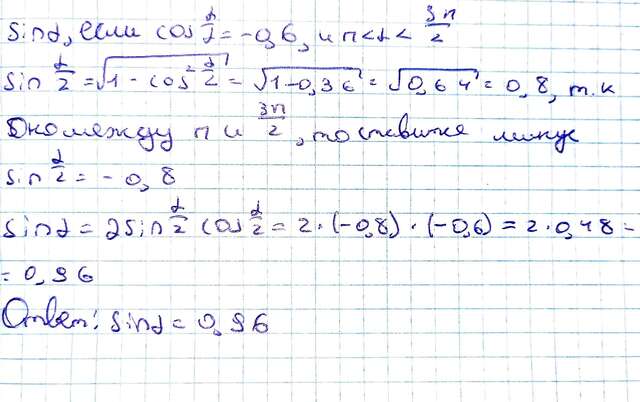 sinα, если cos α/2 = -0,6, и π<α< 3π/2
sin α/2 = √1 - cos² α/2 = √1-0,36 = √0,64 = 0,8, т.к
между π и 3π/2, то ставится минус
sin α/2 = -0,8
sinα = 2sin α/2 cos α/2 = 2·(-0,8)·(-0,6) = 2·0,48 =
= 0,96
Ответ: sinα = 0,96